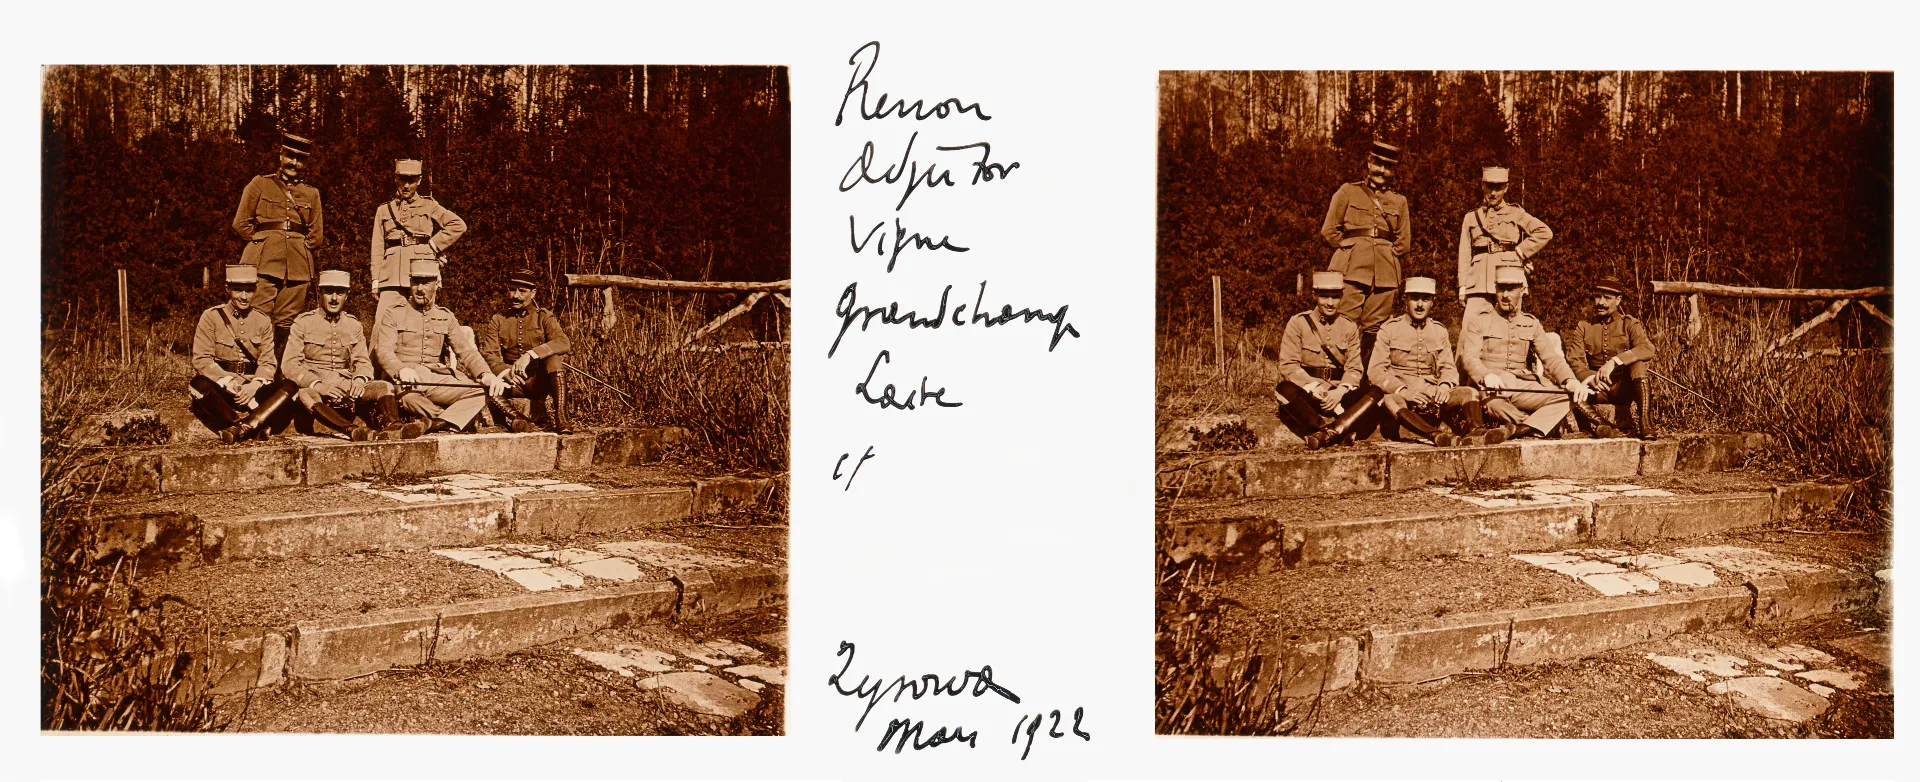 Renon
Adjutor
Vigne
Grandchamp
Laste
et
Zyrowa
Mars 1922